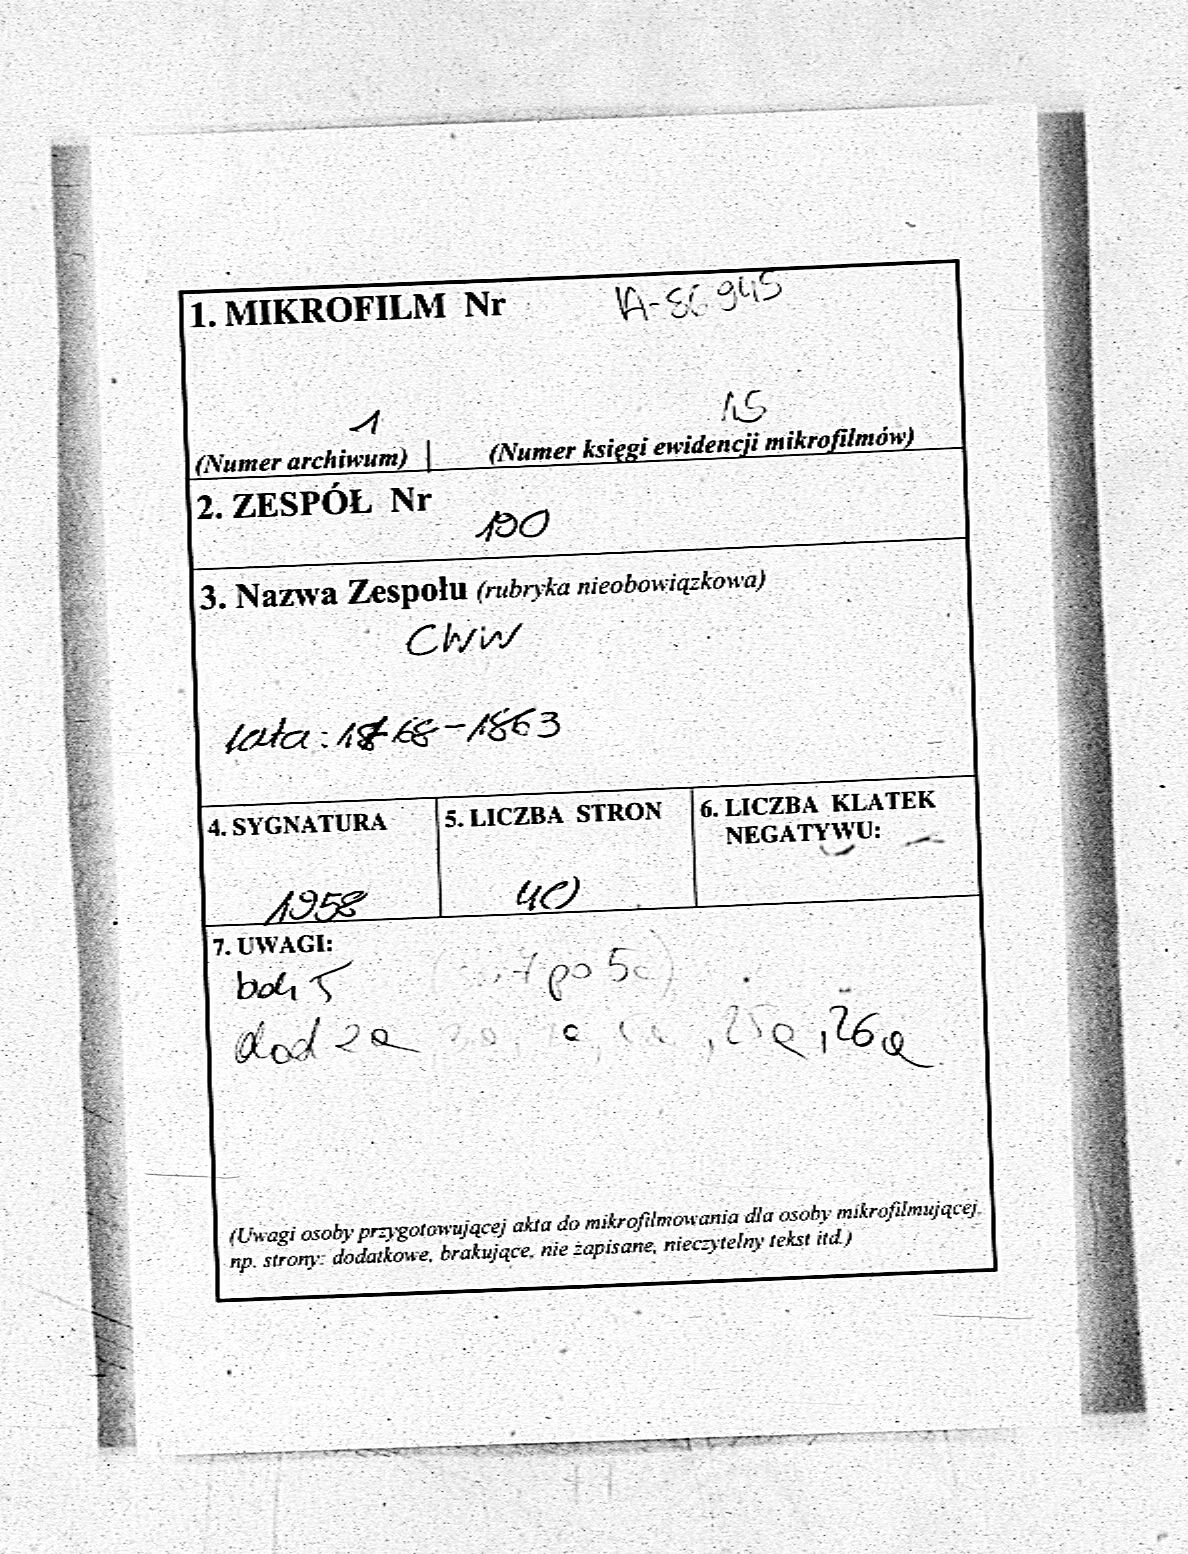 1. MIKROFILM Nr IA-86945
1 15
(Numer archiwum) (Numer księgi ewidencji mikrofilmów)
2. ZESPÓŁ Nr
190
3. Nazwa Zespołu (rubryka nieobowiązkowa)
CWW
lata: 1768-1863
4. SYGNATURA 5. LICZBA STRON 6. LICZBA KLATEK
NEGATYWU:
1958 40
7. UWAGI:
po 5a)
dod 2a , 25a, 26a
(Uwagi osoby przygotowującej akta do mikrofilmowania dla osoby mikrofilmującej,
np. strony: dodatkowe, brakujące, nie zapisane, nieczytelny tekst itd.)